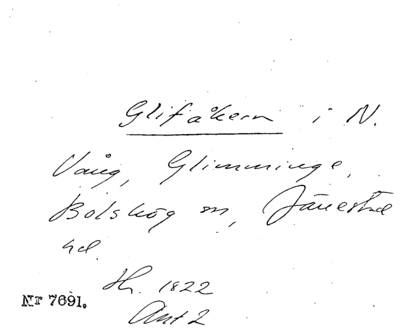 Glifåkern i N.
Vång, Glimminge,
Bolshög sn, Järrestad
hd.
Sk. 1822
Akt 2
Nr 7691.